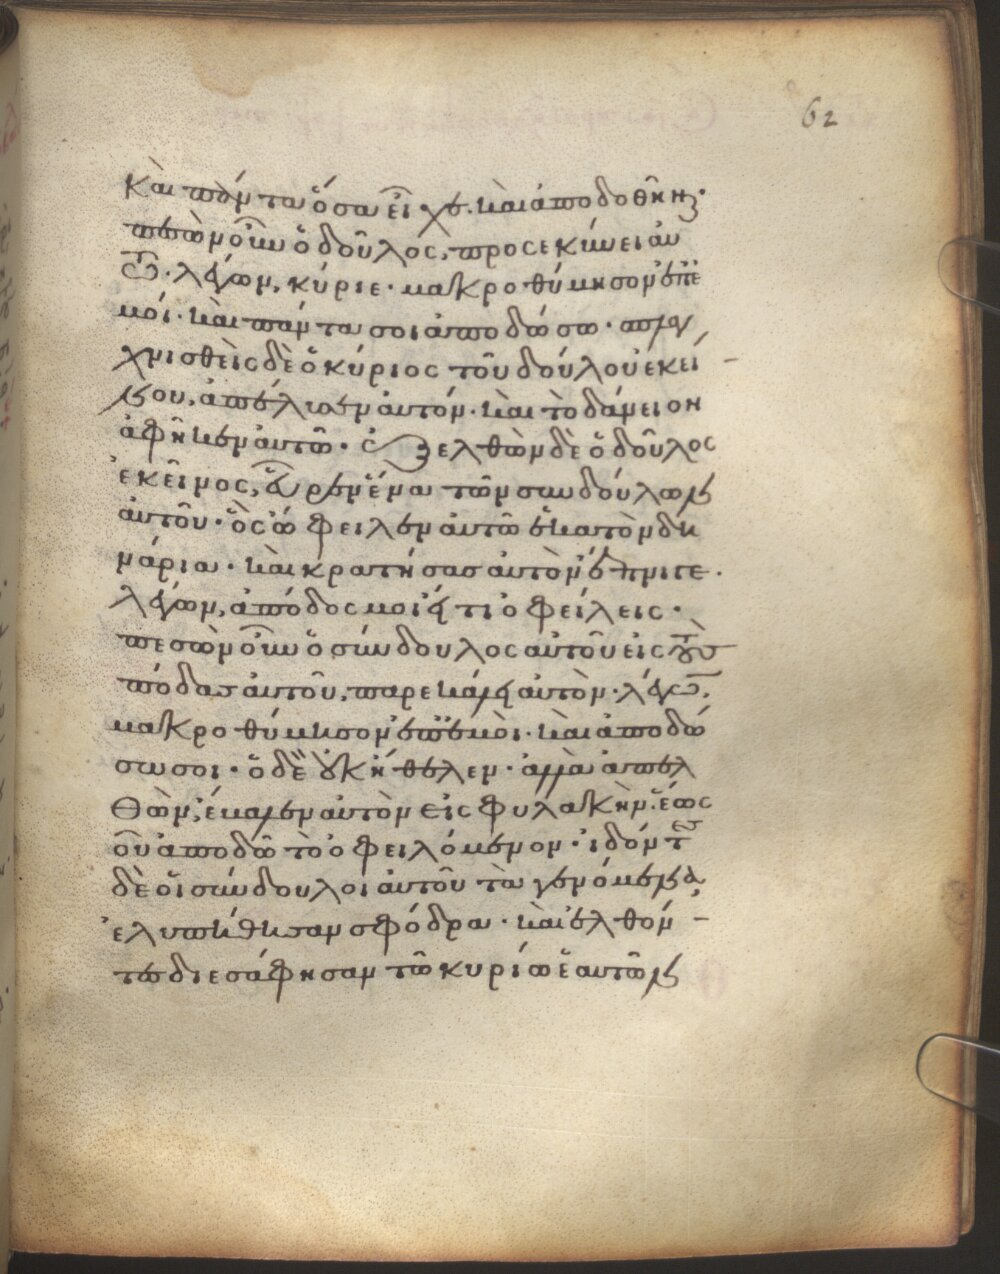 62
Καὶ πάντα ὅσα εἶχε. καὶ ἀποδοθῆναι·
πεσὼν οὖν ὁ δοῦλος, προσεκύνει αὐ
τῶ· λέγων, κύριε· μακροθύμησον ἐπ' ἐ
μοί· καὶ πάντα σοι ἀποδώσω· σπλαγ
χνισθεὶς δὲ ὁ κύριος τοῦ δούλου ἐκεί
νου, ἀπέλυσεν αὐτόν· καὶ τὸ δάνειον
ἀφῆκεν αὐτῶ· ἐξελθὼν δὲ ὁ δοῦλος
ἐκεῖνος, εὗρεν ἕνα τῶν συνδούλων
αὐτοῦ· ὃς ὤφειλεν αὐτῶ ἑκατὸν δη
νάρια· καὶ κρατήσας αὐτὸν ἔπνιγε·
λέγων, ἀπόδος μοι εἴ τι ὀφείλεις·
πεσὼν οὖν ὁ σύνδουλος αὐτοῦ εἰς τοὺς
πόδας αὐτοῦ, παρεκάλει αὐτὸν· λέγων,
μακροθύμησον ἐπ' ἐμοὶ· καὶ ἀποδώ
σω σοι· ὁ δὲ οὐκ ἤθελεν· ἀλλὰ ἀπελ
θὼν, ἔβαλεν αὐτὸν εἰς φυλακὴν. ἕως
οὗ ἀποδῶ τὸ ὀφειλόμενον· ἰδόντες
δὲ οἱ σύνδουλοι αὐτοῦ τὰ γενόμενα,
ἐλυπήθησαν σφόδρα· καὶ ἐλθόν
τες διεσάφησαν τῶ κυρίω ἑαυτῶν